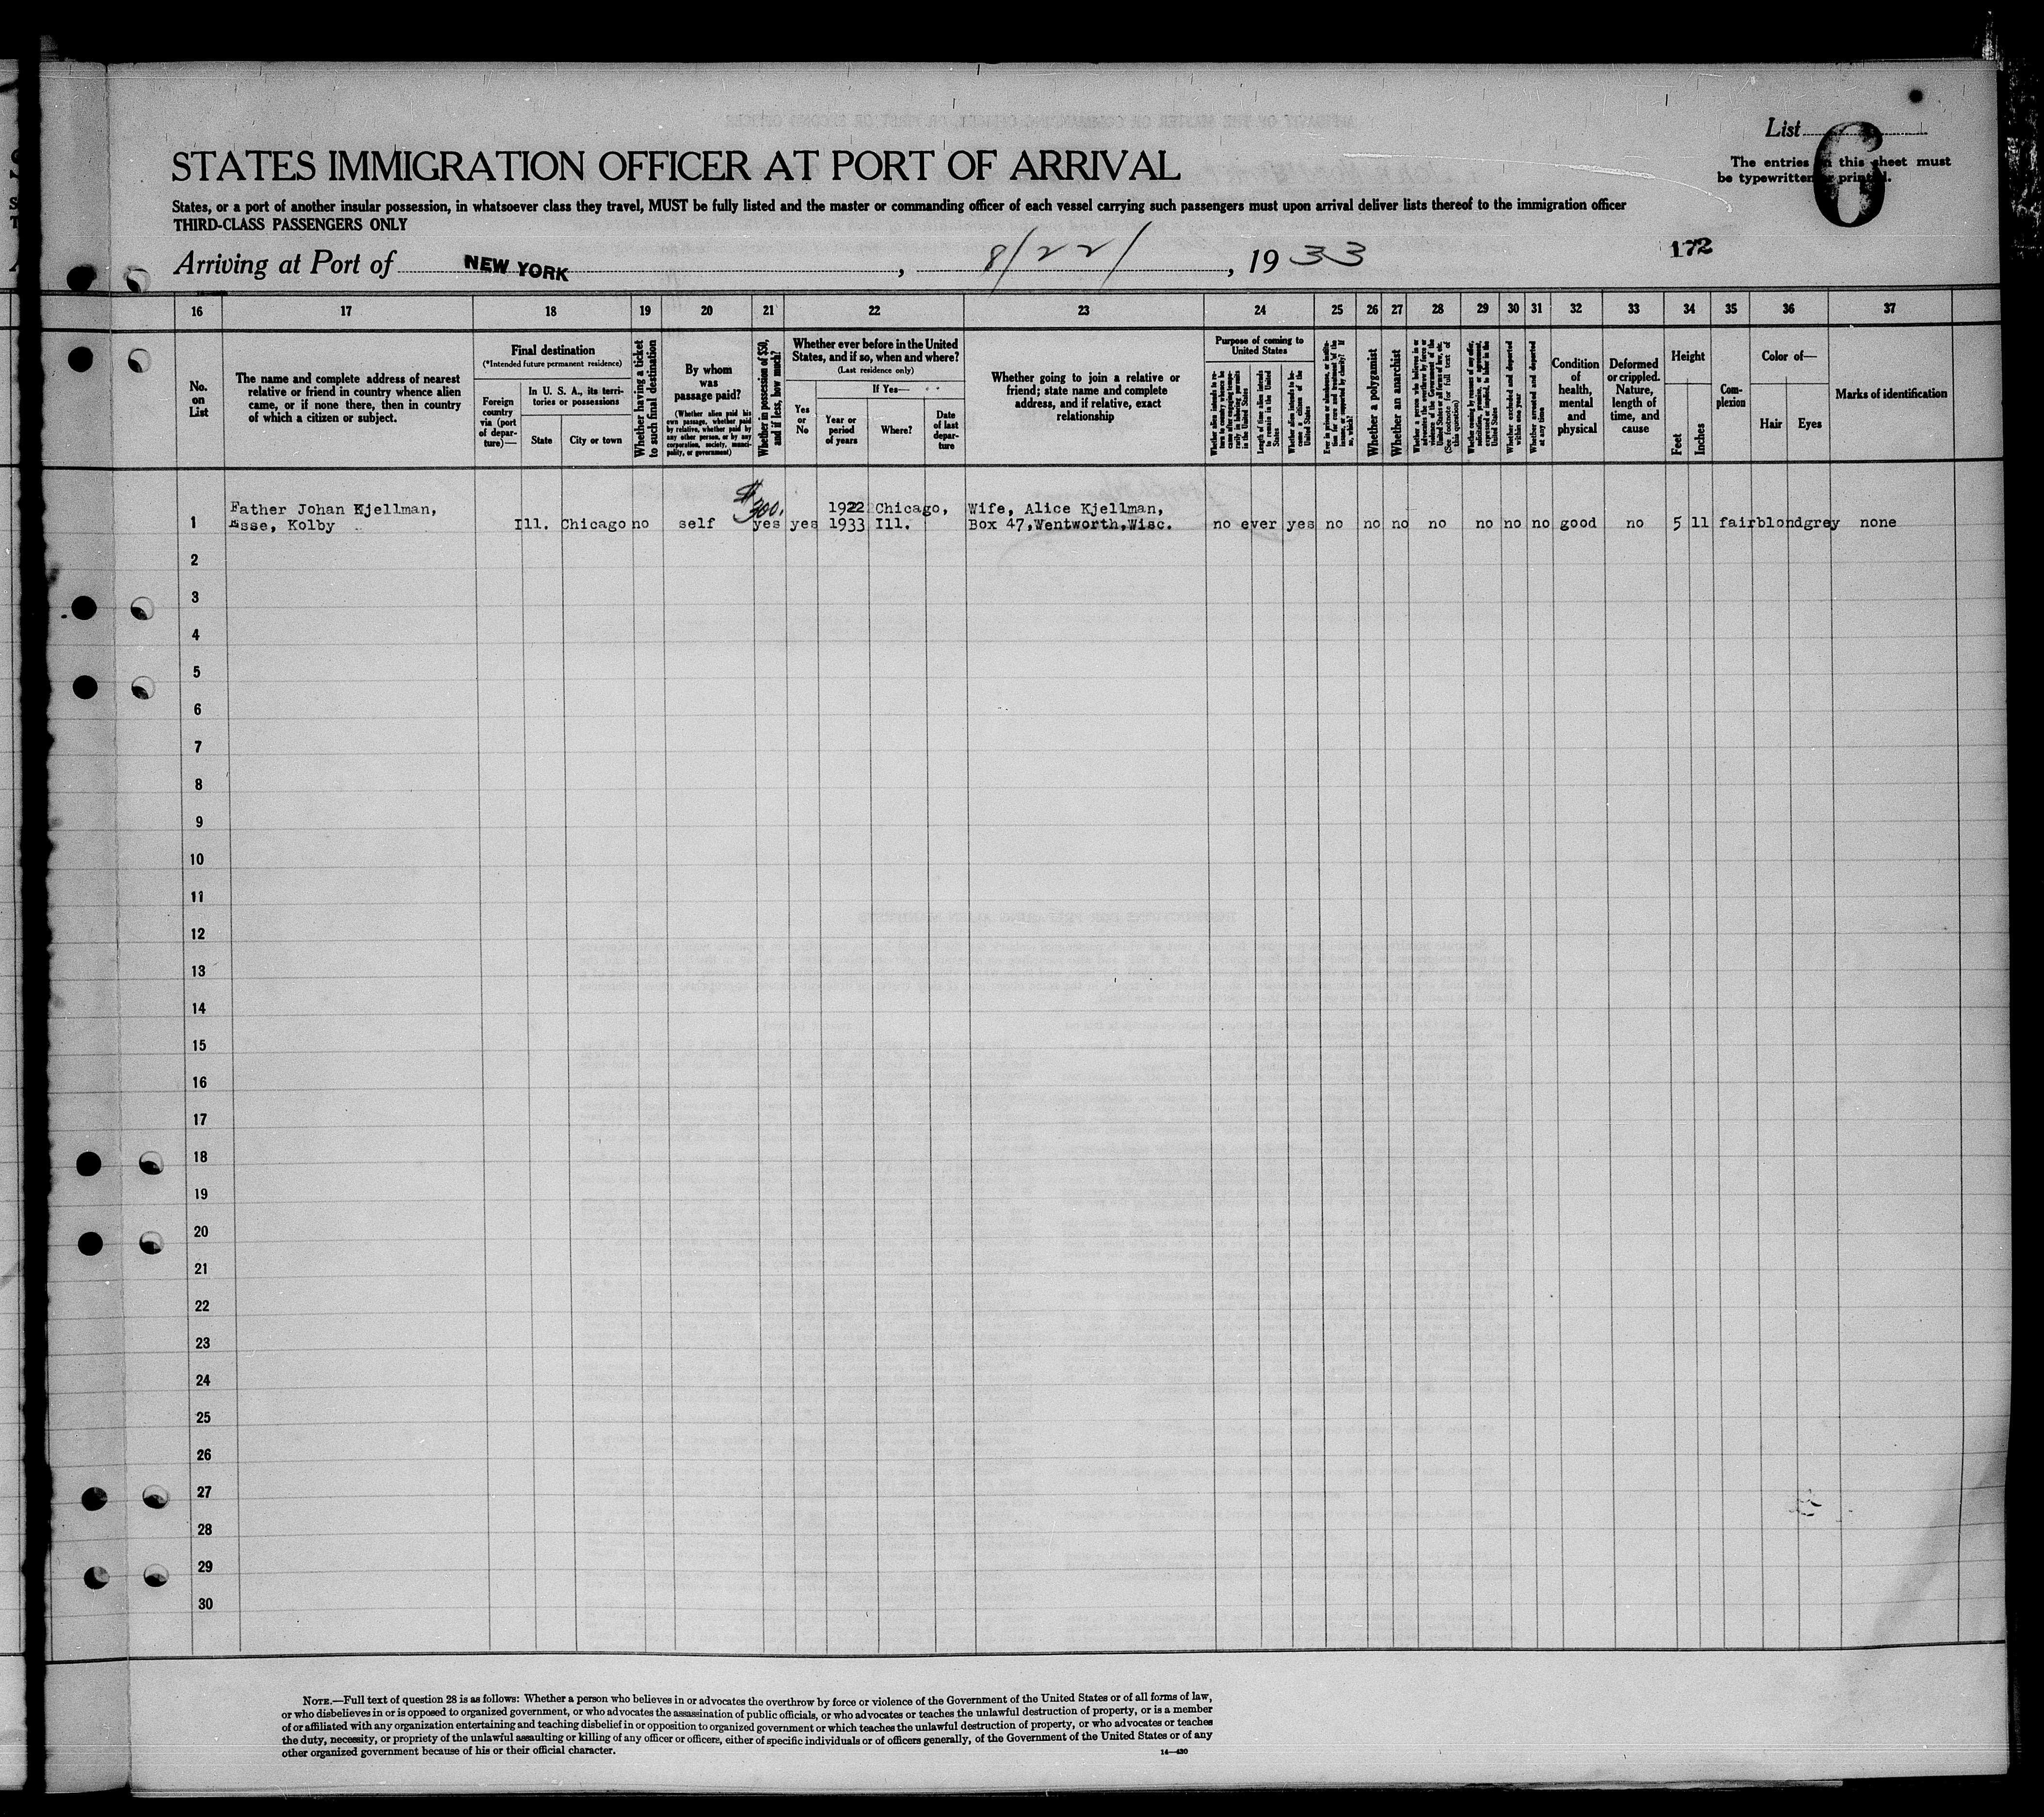 List
6
The entries on this sheet must
be typewritten or printed.
STATES IMMIGRATION OFFICER AT PORT OF ARRIVAL
States, or a port of another insular possession, in whatsoever class they travel, MUST be fully listed and the master or commanding officer of each vessel carrying such passengers must upon arrival deliver lists thereof to the immigration officer
THIRD-CLASS PASSENGERS ONLY
Arriving at Port of NEW YORK, 8/22/, 1933
172
16 17 18 19 20 21 22 23 24 25 26 27 28 29 30 31 32 33 34 35 36 37
No.
on
List
The name and complete address of nearest
relative or friend in country whence alien
came, or if none there, then in country
of which a citizen or subject.
Final destination
(*Intended future permanent residence)
Foreign
country
via (port
of depar-
ture)—
In U. S. A., its terri-
tories or possessions
State
City or town
Whether having a ticket
to such final destination
By whom
was
passage paid?
(Whether alien paid his
own passage, whether paid
by relative, whether paid by
any other person, or by any
corporation, society, munici-
pality, or government)
Whether in possession of $50,
and if less, how much?
Whether ever before in the United
States, and if so, when and where?
(Last residence only)
Yes
or
No
If Yes—
Year or
period
of years
Where?
Date
of last
depar-
ture
Whether going to join a relative or
friend; state name and complete
address, and if relative, exact
relationship
Purpose of coming to
United States
Whether alien intends to re-
turn to country whence he
came after engaging tempo-
rarily in laboring pursuits
in the United States
Length of time alien intends
to remain in the United
States
Whether alien intends to be-
come a citizen of the
United States
Ever in prison or almshouse, or institu-
tion for care and treatment of the
insane, or supported by charity? If
so, which?
Whether a polygamist
Whether an anarchist
Whether a person who believes in or
advocates the overthrow by force or
violence of the Government of the
United States or all forms of law, etc.
(See footnote for full text of
this question)
Whether coming by reason of any offer,
solicitation, promise, or agreement,
expressed or implied, to labor in the
United States
Whether excluded and deported
within one year
Whether arrested and deported
at any time
Condition
of
health,
mental
and
physical
Deformed
or crippled.
Nature,
length of
time, and
cause
Height
Feet
Inches
Com-
plexion
Color of—
Hair
Eyes
Marks of identification
$300.
Father Johan Kjellman, 1922 Chicago, Wife, Alice Kjellman,
1 Esse, Kolby Ill. Chicago no self yes yes 1933 Ill. Box 47, Wentworth, Wisc. no ever yes no no no no no no no good no 5 11 fair blond grey none
2
3
4
5
6
7
8
9
10
11
12
13
14
15
16
17
18
19
20
21
22
23
24
25
26
27
28
29
30
NOTE.—Full text of question 28 is as follows: Whether a person who believes in or advocates the overthrow by force or violence of the Government of the United States or of all forms of law,
or who disbelieves in or is opposed to organized government, or who advocates the assassination of public officials, or who advocates or teaches the unlawful destruction of property, or is a member
of or affiliated with any organization entertaining and teaching disbelief in or opposition to organized government or which teaches the unlawful destruction of property, or who advocates or teaches
the duty, necessity, or propriety of the unlawful assaulting or killing of any officer or officers, either of specific individuals or of officers generally, of the Government of the United States or of any
other organized government because of his or their official character.
14—430